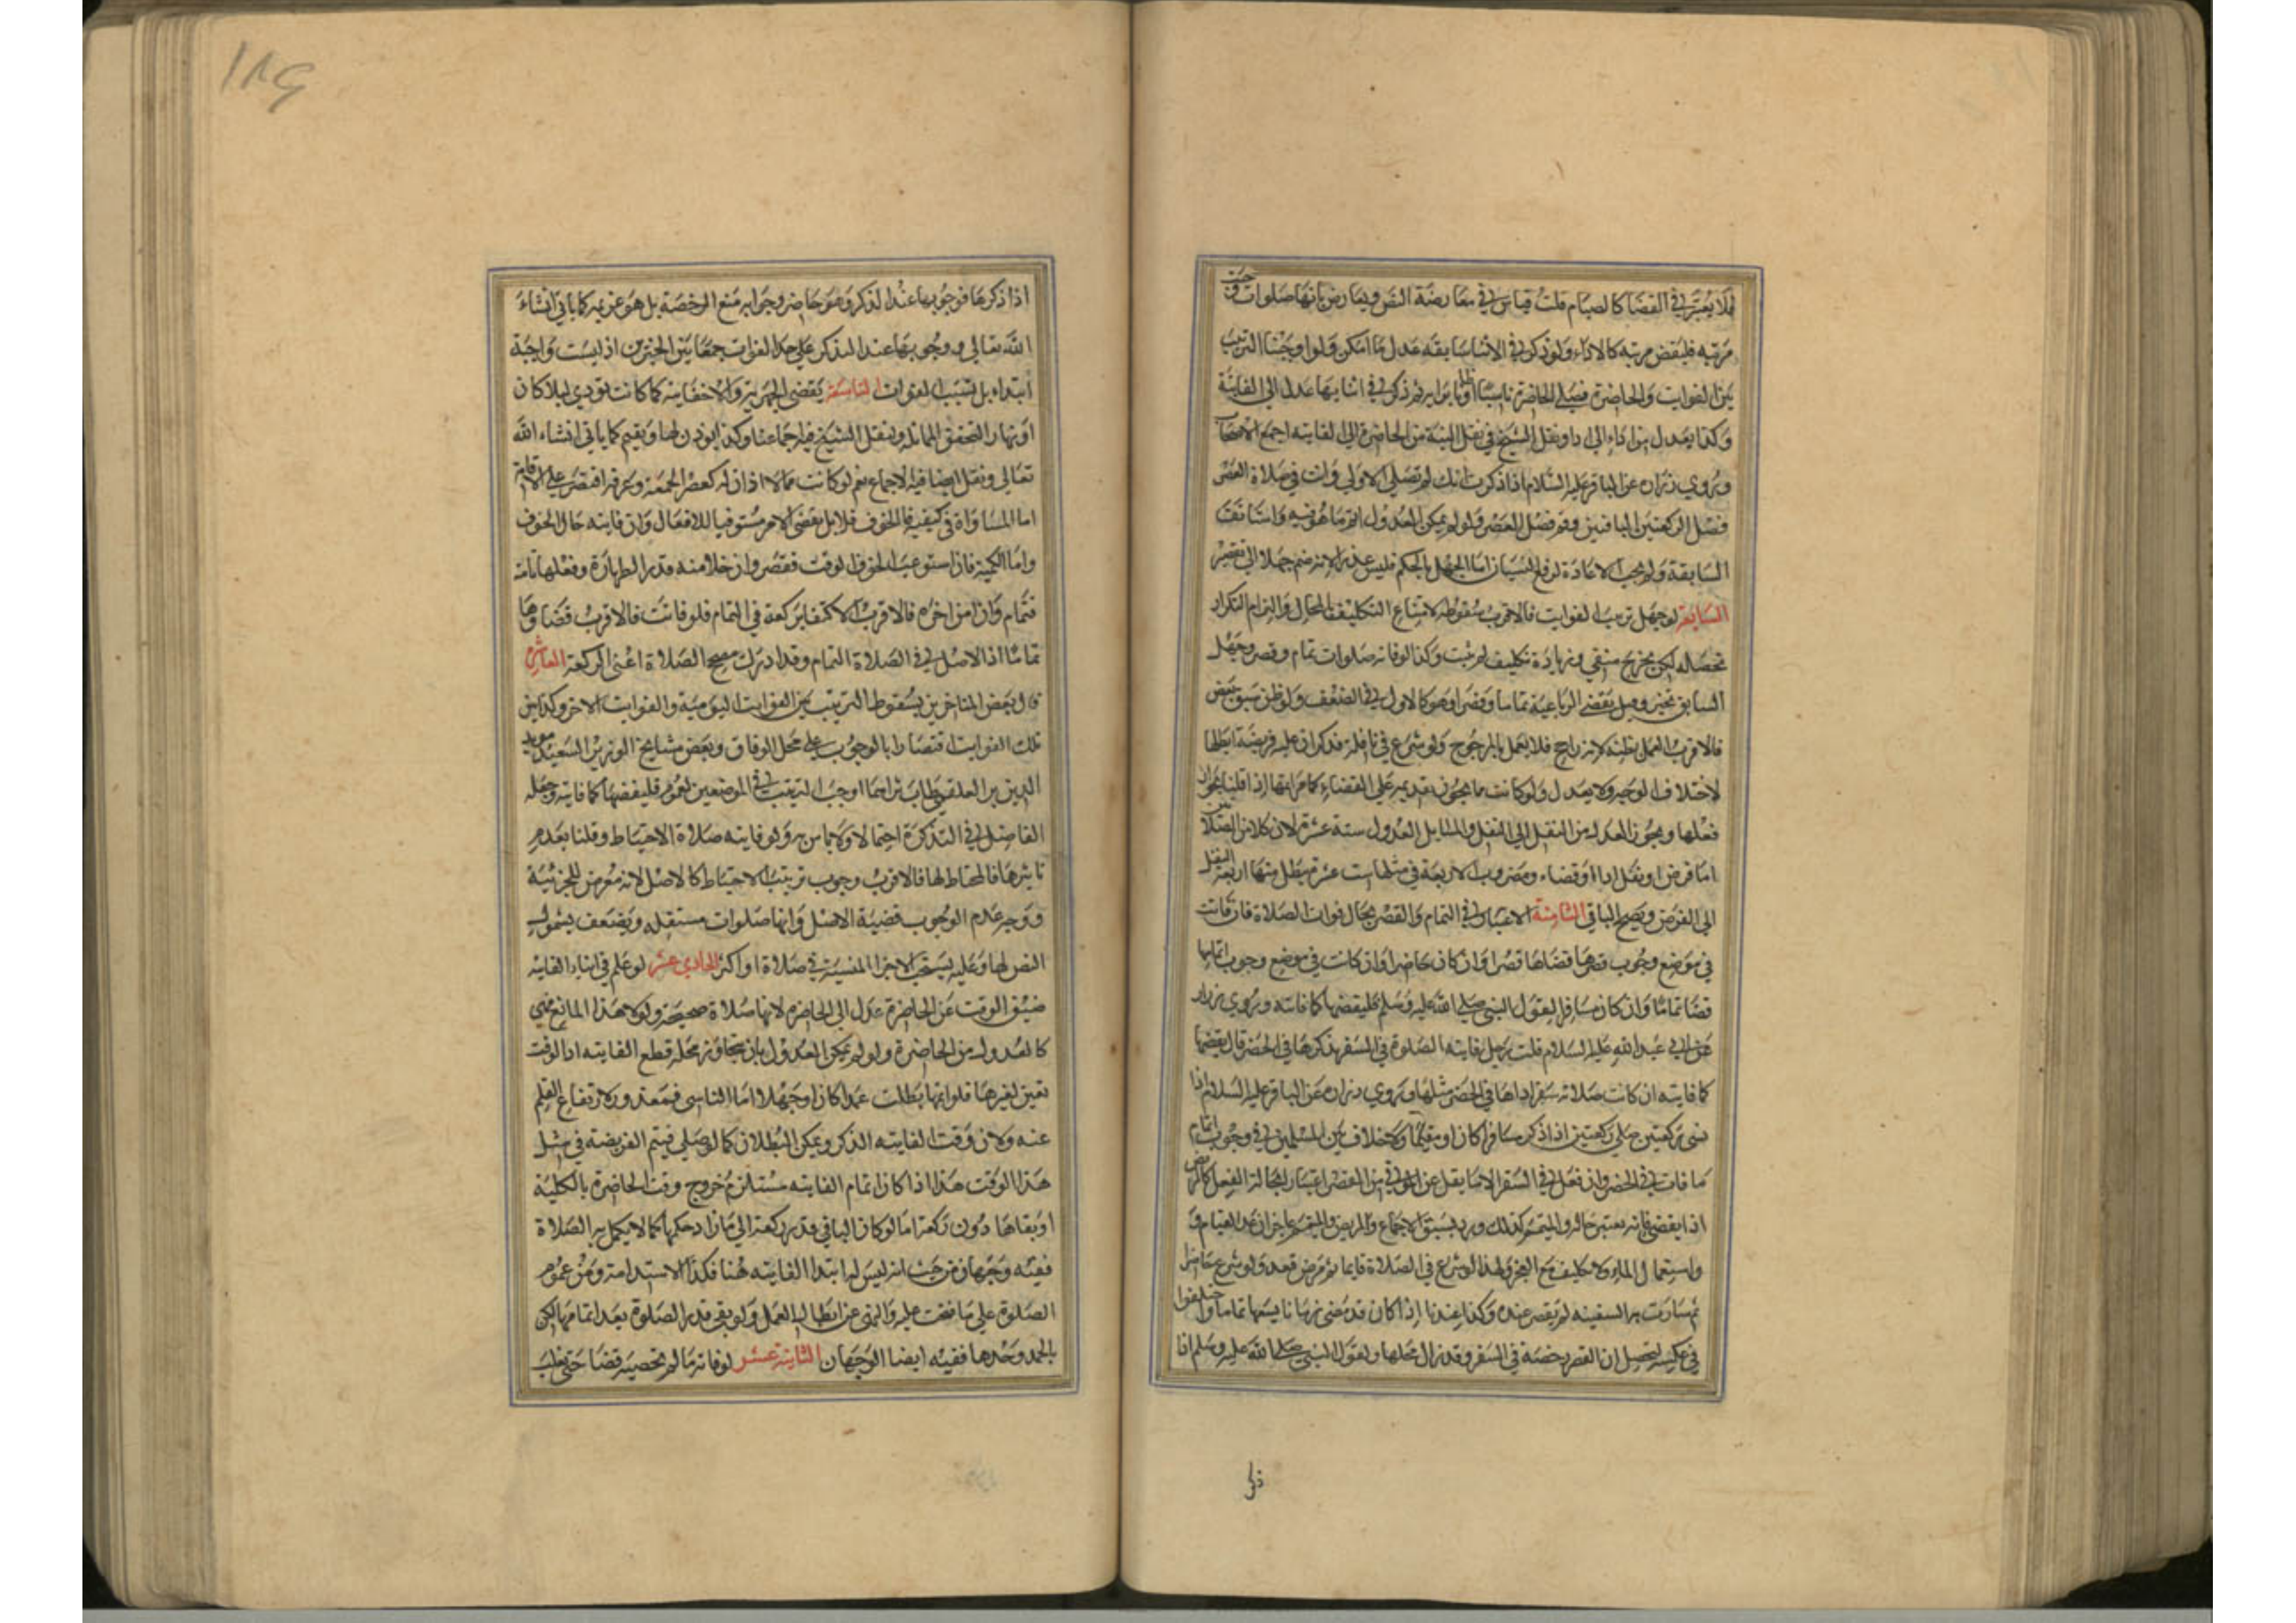 فلا يعتبر في القضا كالصيام قلت قياس في معارضة النص ويعارض بانها صلوات وجبت
مرتبه فليقض مرتبه كالاداء ولو ذكر في الاثنا سابقه عدل ما امكن ولو اوجبنا الترتيب
بين الفوايت والحاضرة فصلى الحاضرة ناسيا او ظانا براءته ثم ذكر في اثنايها عدل الى الفايتة
وكذا يعدل من اداء الى ادا ونقل الشيخ في نقل النية من الحاضرة الى الفايته اجمع الاصحاب
وروى زراره عن الباقر عليه السلام اذا ذكرت انك لم تصلي الاولى وانت في صلاة العصر
فصل الركعتين الباقيتين وقم فصل العصر ولو لم يمكن العدول اتم ما هو فيه واستأنف
السابقة ولم يجب الاعادة لرفع النسيان اما الجهل بالحكم فليس عذرا لانه ضم جهلا الى تقصير
السابعة لو جهل ترتيب الفوايت فالاقرب سقوطه لامتناع التكليف بالمحال والتزام التكرار
تحصله لكن بحرج منفي وزيادة تكليف لم يثبت وكذا لو فاته صلوات تمام وقصر وجهل
السابق تخير وقيل يقضي الرباعية تماما وقصرا وهو كالاول في الضعف ولو ظن سبق بعض
فالاقرب العمل بظنه لانه راجح فلا يعمل بالمرجوح ولو شرع في نافلة فذكر ان عليه فريضة ابطلها
لاختلاف الوجه ولا يعدل ولو كانت ما يجوز تقديمه على القضاء كما مر اتمها اذا قلنا بجواز
فعلها ويجوز العدول من النفل الى النفل والمسايل العدول ستة عشرة لان كلا من الصلاتين
اما فرض او نفل ادا او قضاء ومضروب الاربعة في مثلها ست عشرة يبطل منها اربعة النفل
الى الفرض ويصح الباقي الثامنة الاعتبار في التمام والقصر بحال فوات الصلاة فان فاتت
في موضع وجوب قصرها قضاها قصرا وان كان حاضرا وان كانت في موضع وجوب اتمامها
قضا تماما وان كان مسافرا لقول النبي صلى الله عليه وسلم فليقضها كما فاتته وروى زراره
عن ابي عبد الله عليه السلام قلت رجل فايته الصلوة في السفر فذكرها في الحضر قال يقضيها
كما فاتته ان كانت صلاته سفر اداها في الحضر مثلها وروى زراره عن الباقر عليه السلام اذا
نسى ركعتين صلى ركعتين اذا ذكر مسافرا كان او مقيما ولا خلاف بين المسلمين في وجوب اتمام
ما فات في الحضر وان فعل في السفر الا ما نقل عن المزني من القصر اعتبارا بحالة الفعل كالمرض
اذا يقضي فانه يعتبر حاله والمتيمم كذلك ورد بسبق الاجماع والمريض والمتيمم عاجزان عن القيام و
واستعمال الماء ولا تكليف مع العجز ولهذا لو شرع في الصلاة قايما ثم مرض قعد ولو شرع حاضرا
ثم سارت به السفينه لم يقصر عنده وكذا عندنا اذا كان قد مضى زمانا يسعها تماما واختلفوا
في عكسه لتحصيل ان القصر رخصة في السفر وقد زال محلها ولقول النبي صلى الله عليه وسلم اذا
اذا ذكرها فوجوبها عند الذكر وهو حاضر وجوابه منع الرخصة بل هو عزيمه كما ياتي انشاء
الله تعالى ووجوبها عند الذكر على حد الفوات جمعا بين الخبرين اذ ليست واجبة
ابتداء بل تسبب الفوات التاسعة يقضي الجهرية والاخفاتيه كما كانت تودي ليلا كان
او نهارا لتحقق المماثله ونقل الشيخ فيه اجماعنا وكذا يوذن لها ويقيم كما ياتي انشاء الله
تعالى ونقل ايضا فيه الاجماع نعم لو كانت مما لا اذان له كعصر الجمعة وعرفه اقتصر على الاقامة
اما المساواة في كيفية الخوف فلا بل يقضي الامن مستوفيا للافعال وان فاتته حال الخوف
واما الكمية فان استوعب الخوف الوقت فقصر وان خلا منه قدر الطهارة وفعلها تامة
فتمام وان امن اخره فالاقرب الاكتفا بركعة في التمام فلو فاتت فالاقرب قضاوها
تماما اذ الاصل في الصلاة التمام وقد ادرك مصحح الصلاة اعني الركعة العاشرة
قال بعض المتاخرين بسقوط الترتيب بين الفوايت اليومية والفوايت الاخر وكذا بين
تلك الفوايت اقتصارا بالوجوب على محل الوفاق وبعض مشايخ الوزير السعيد مويد
الدين بن العلقمي طاب ثراهما اوجب الترتيب في الموضعين لعموم فليقضها كما فاتته وجعله
الفاضل في التذكرة احتمالا ولا باس به ولو فاتته صلاة الاحتياط وقلنا بعدم
تاثيرها في المحتاط لها فالاقرب وجوب ترتيب الاحتياط كالاصل لانه معرض للجزئية
ووجه عدم الوجوب قضية الاصل وانها صلوات مستقله ويضعف بشمول
النص لها وعليه يستحب الاجزا المنسية في صلاة او اكثر الحادي عشر لو علم في اثناء الفايته
ضيق الوقت عن الحاضرة عدل الى الحاضره لانها صلاة صحيحة ولولا هذا المانع فهي
كالعدول من الحاضرة ولو لم يمكن العدول بان تجاوز محله قطع الفايته اذ الوقت
تعين لغيرها فلو اتمها بطلت عمدا كان او جهلا اما الناسي فمعذور لارتفاع القلم
عنه ولان وقت الفايته الذكر ويمكن البطلان كما لو صلى فيتم الفريضة في مثل
هذا الوقت هذا اذا كان اتمام الفايته مستلزم خروج وقت الحاضرة بالكلية
او بقاها دون ركعة اما لو كان الباقي قدر ركعة الى ما زاد حكمها كما لا يكمل به الصلاة
ففيه وجهان من حيث انه ليس له ابتدا الفايته هنا فكذا الاستدامة ومن عموم
الصلوة على ما فتحت عليه والنهي عن ابطال العمل ولو بقي قدر الصلوة بعد اتمامها لكن
بالحمد وحدها ففيه ايضا الوجهان الثانية عشر لو فاته ما لم تحصيه قضا حتى يغلب